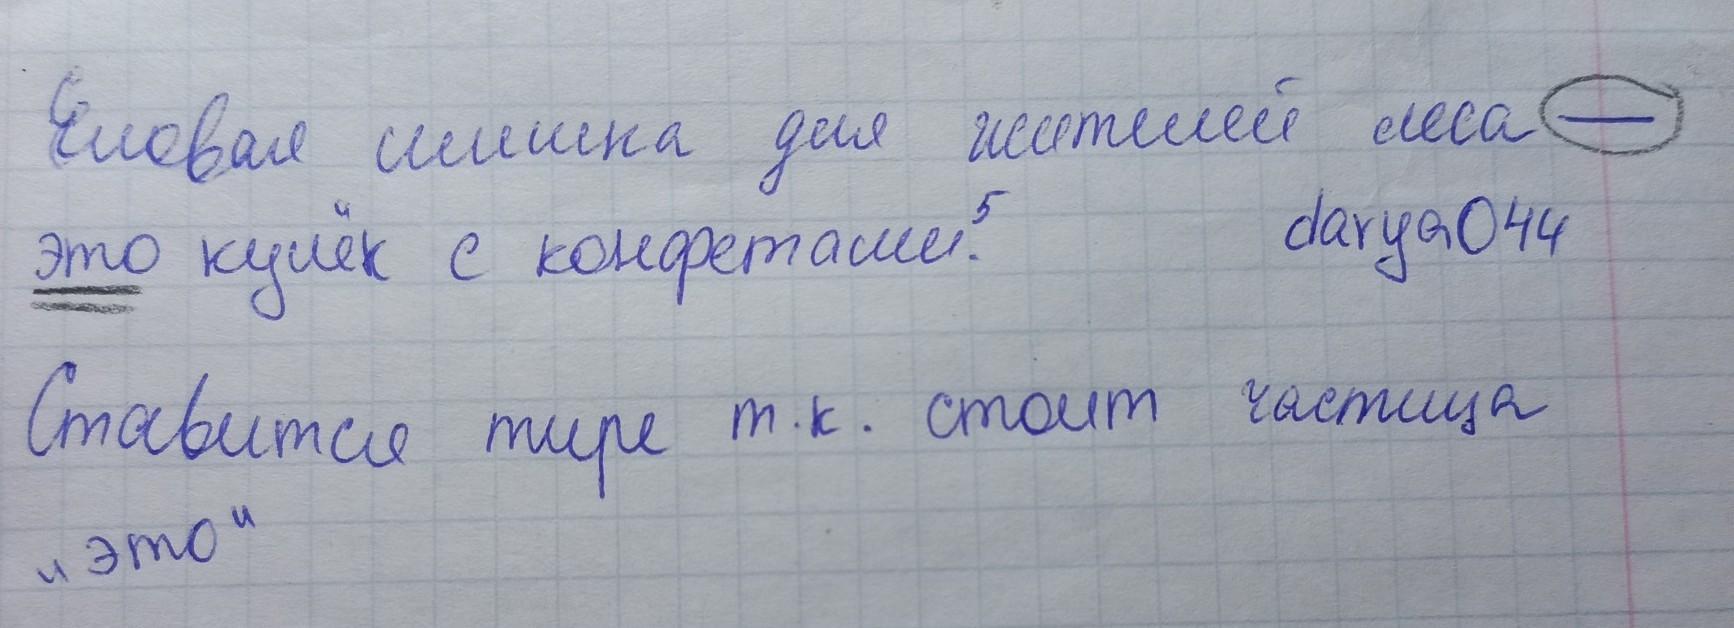 Еловая шишка для жителей леса —
это кулёк с конфетами.⁵ darya044
Ставится тире т.к. стоит частица
„это“